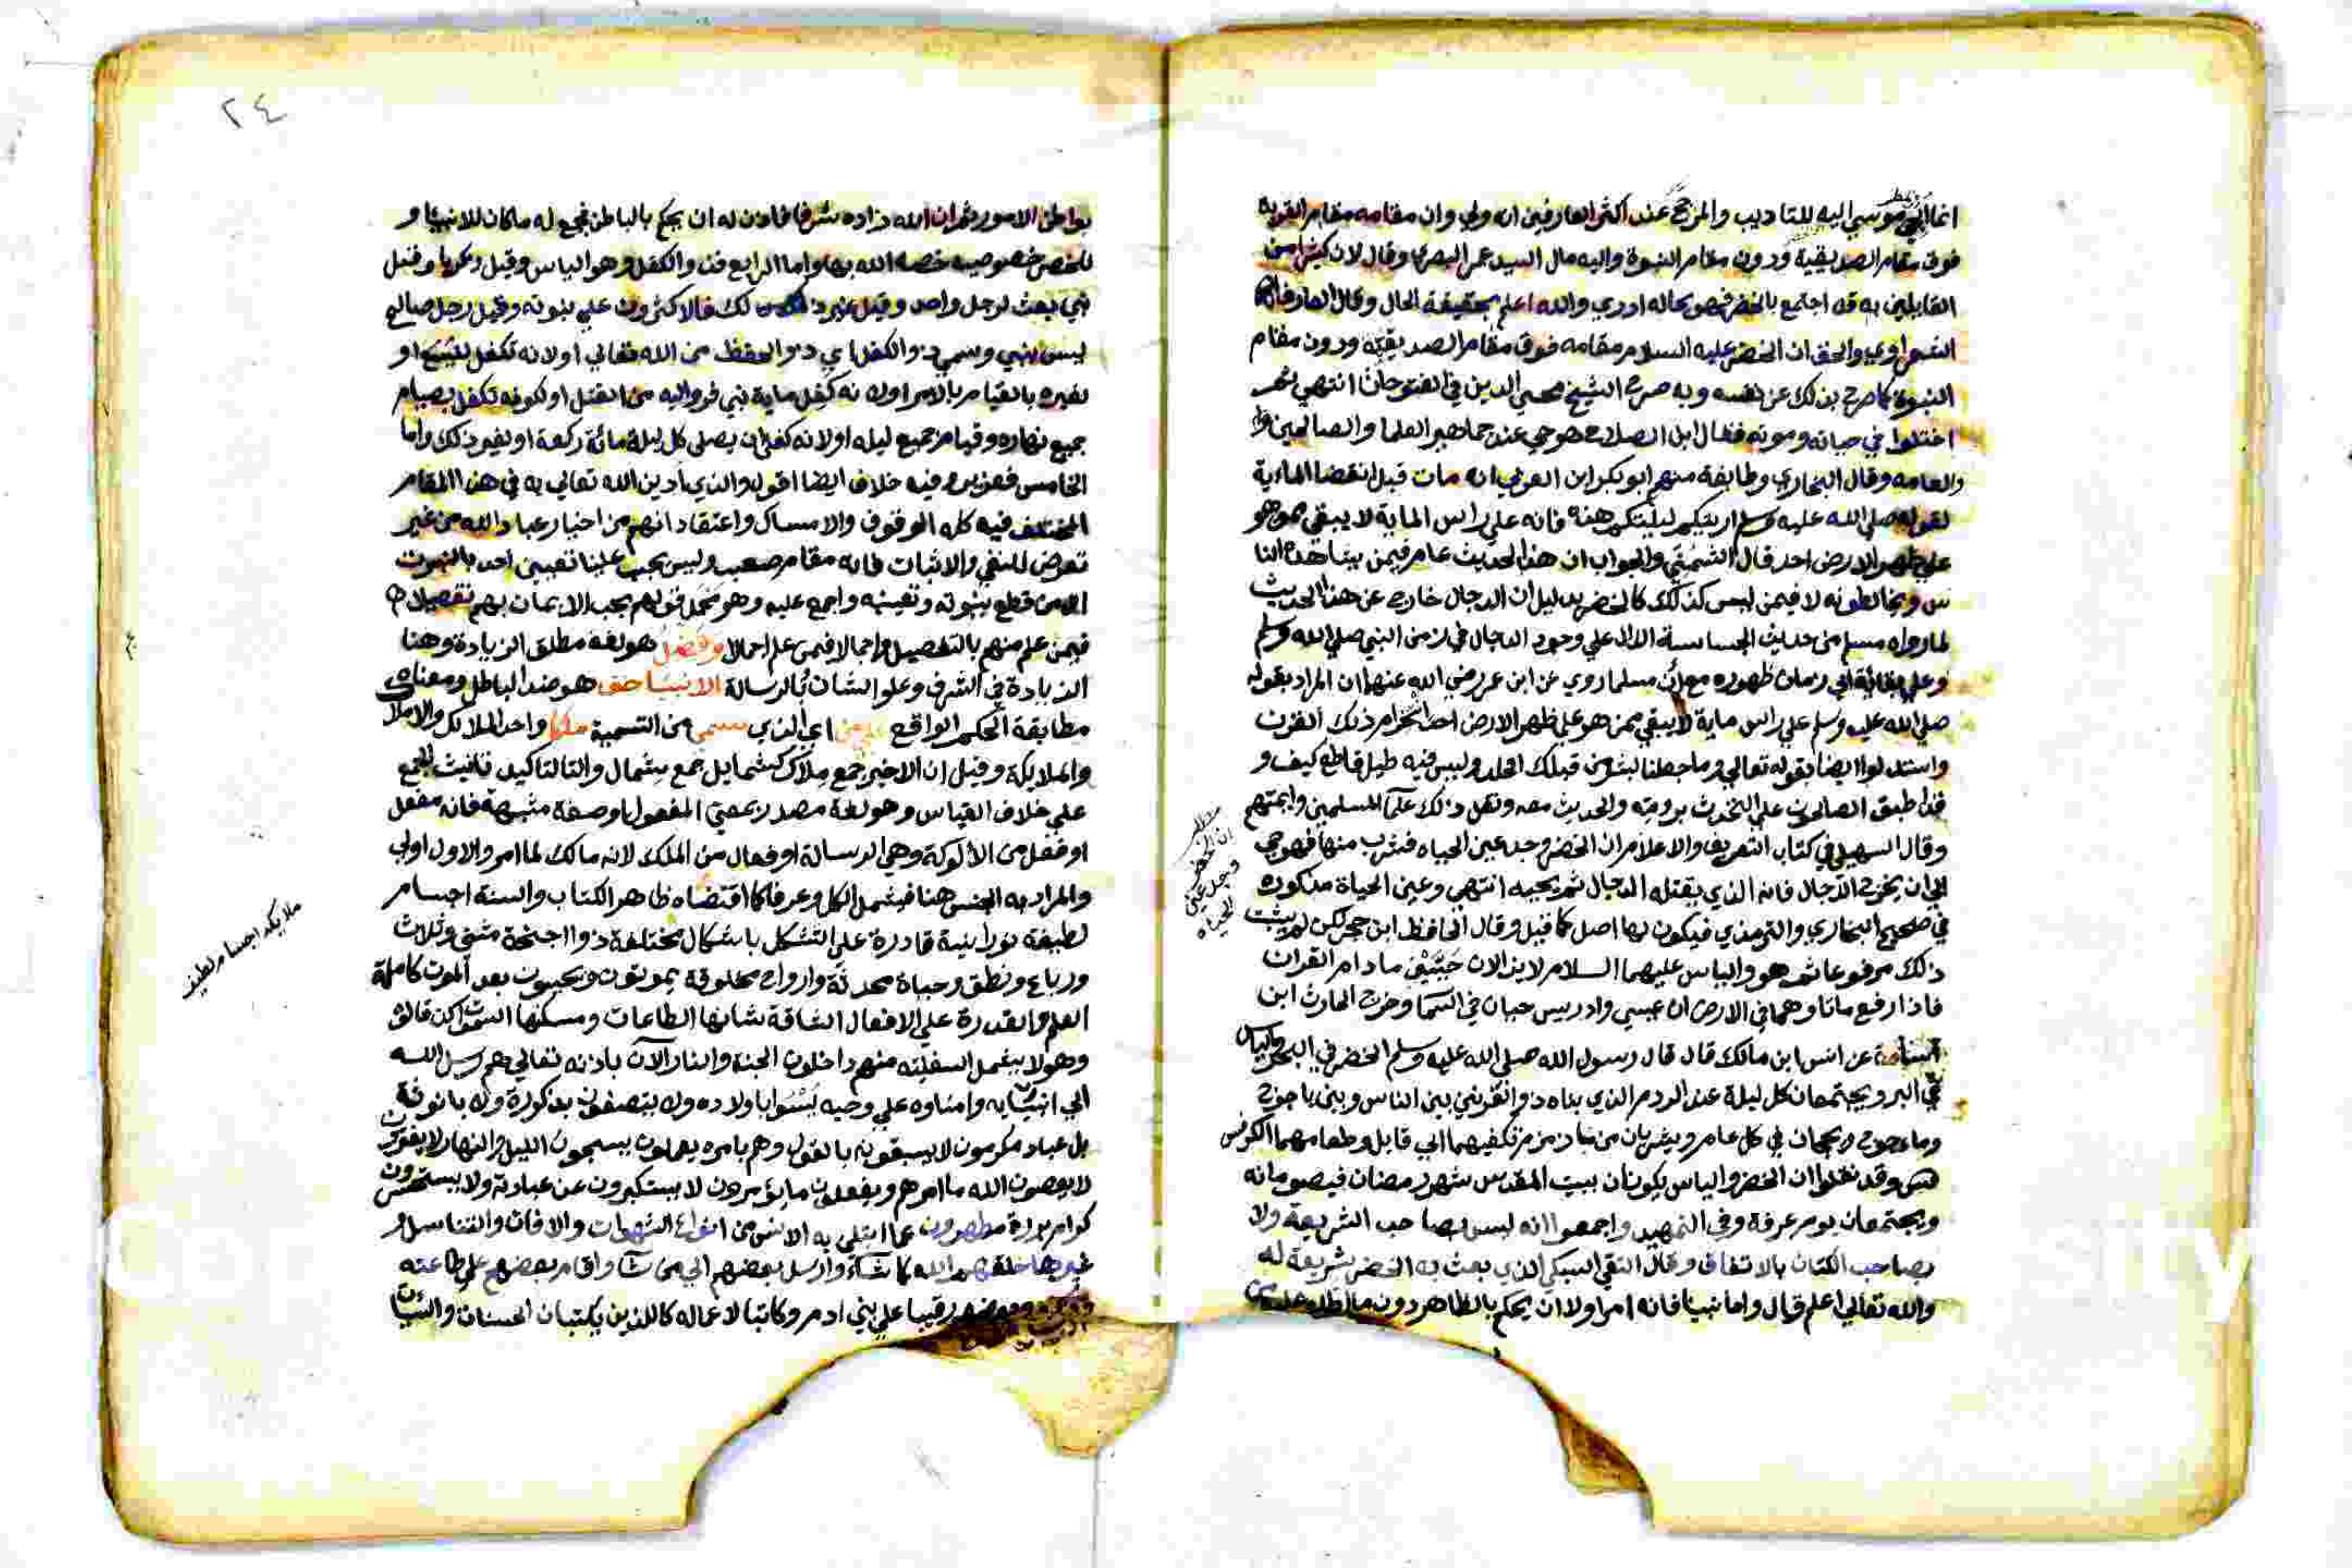 انما الجي موسي اليه للتاديب والمرجح عند اكثر العارفين انه ولي وان مقامه مقام القربة
فوق مقام الصديقية ودون مقام النبوة واليه مال السيد عمر البصري وقال لان كثيرا من
القايلين به قد اجتمع بالخضر فهو بحاله ادري والله اعلم بحقيقة الحال وقال العارف
الشعراوي والحق ان الخضر عليه السلام مقامه فوق مقام الصديقية ودون مقام
النبوة كما صرح بذلك عن نفسه وبه صرح الشيخ محيي الدين في الفتوحات انتهي ثم
اختلفوا في حياته وموته فقال ابن الصلاح هو حي عند جماهير العلما والصالحين وا
والعامه وقال البخاري وطايفة منهم ابو بكر ابن العربي انه مات قبل انقضا الماية
لقوله صلي الله عليه وسلم اريتكم ليلتكم هذه فانه علي راس الماية لا يبقي ممن هو
علي ظهر الارض احد قال الشمني والجواب ان هذا الحديث عام فيمن يشاهده النا
س ويخالطونه لا فيمن ليس كذلك كالخضر بدليل ان الدجال خارج عن هذا الحديث
لما رواه مسلم من حديث الجساسة الدال علي وجود الدجال في زمن النبي صلي الله وسلم
وعلي بقائه الي زمان ظهوره مع ان مسلما روي عن ابن عمر رضي الله عنهما ان المراد بقوله
صلي الله عليه وسلم علي راس ماية لا يبقي ممن هو علي ظهر الارض احد انخرام ذلك القرن
واستدلوا ايضا بقوله تعالي وما جعلنا لبشر من قبلك الخلد وليس فيه دليل قاطع كيف و
قد اطبق الصالحون علي التحدث برويته والحديث معه ونقل ذلك علما المسلمين وايمتهم
وقال السهيلي في كتاب التعريف والاعلام ان الخضر وجد عين الحياه فشرب منها فهو حي
الي ان يخرج الدجال فانه الذي يقتله الدجال ثم يحييه انتهي وعين الحياة مذكوره
في صحيح البخاري والترمذي فيكون لها اصل كما قيل وقال الحافظ ابن حجر لكن لم يثبت
ذلك مرفوعا ثم هو والياس عليهما السلام لا يزالان حيين ما دام القران
فاذا رفع ماتا وهما في الارض ان عيسي وادريس حيان في السما وخرج الحارث ابن
عن انس ابن مالك قال قال رسول الله صلي الله عليه وسلم الخضر في البحر والياس
في البر ويجتمعان كل ليلة عند الردم الذي بناه ذو القرنين بين الناس وبين ياجوج
وماجوج ويحجان في كل عام ويشربان من ماء زمزم تكفيهما الي قابل وطعامهما الكرفس
وقد نقلوا ان الخضر والياس يكونان ببيت المقدس شهر رمضان فيصومانه
ويجتمعان يوم عرفة وفي التمهيد واجمعوا انه ليس بصاحب الشريعة ولا
بصاحب الكتاب بالاتفاق وقال التقي السبكي الذي بعث به الخضر شريعة له
والله تعالي اعلم قال واما نبينا فانه امر اولا ان يحكم بالظاهر دون ما اطلع عليه من
ان الخضر
وجد عين
الحياه
٢٤
بواطن الامور ثم ان الله زاده شرفا فاذن له ان يحكم بالباطن فجمع له ما كان للانبيا و
للخضر خصوصية خصه الله بها واما الرابع فذو الكفل وهو الياس وقيل زكريا وقيل
نبي بعث لرجل واحد وقيل غير ذلك فالاكثرون علي نبوته وقيل رجل صالح
ليس بنبي وسمي ذو الكفل اي ذو الحفظ من الله تعالي او لانه تكفل لليسع او
لغيره بالقيام بالامر او لانه كفل ماية نبي فروا اليه من القتل او لكونه تكفل بصيام
جميع نهاره وقيام جميع ليله او لانه كفل ان يصلي كل ليلة مائة ركعة او لغير ذلك واما
الخامس فعزير وفيه خلاف ايضا اقول والذي ادين الله تعالي به في هذا المقام
المختلف فيه كله الوقوف والامساك واعتقاد انهم من اخيار عباد الله من غير
تعرض للنفي والاثبات فانه مقام صعب وليس يجب علينا تعيين احد بالنبوت
الا من قطع بنبوته وتعينه واجمع عليه وهو محمل قولهم يجب الايمان بهم تفصيلا
فيمن علم منهم بالتفصيل واجمالا فيمن علم اجمالا وفضل هو لغة مطلق الزيادة وهنا
الزيادة في الشرف وعلو الشان بالرسالة الانبيا حق هو ضد الباطل ومعناه
مطابقة الحكم الواقع علي من اي الذي سمي من التسمية ملكا واحد الملائك والاملاك
والملايكة وقيل ان الاخير جمع ملاك كشمايل جمع شمال والتا لتاكيد تانيث الجمع
علي خلاف القياس وهو لغة مصدر بمعني المفعول او صفة مشبهة فانه مفعل
او فعل من الالوكة وهي الرسالة او فعال من الملك لانه مالك لما امر والاول اولي
والمراد به الجنس هنا فيشمل الكل وعرفا كما اقتضاه ظاهر الكتاب والسنة اجسام
لطيفة نورانية قادرة علي التشكل باشكال مختلفة ذوا اجنحة مثني وثلاث
ورباع ونطق وحياة محدثة وارواح مخلوقة يموتون ويحيون بعد الموت كاملة
العلم والقدرة علي الافعال الشاقة شانها الطاعات ومسكنها السموات
وهو لا ينفي السفلية منهم داخلون الجنة والنار الآن باذنه تعالي هم رسل الله
الي انبيايه وامناوه علي وحيه ليسوا باولاده ولا يتصفون بذكورة ولا بانوثة
بل عباد مكرمون لا يسبقونه بالقول وهم بامره يعملون يسبحون الليل والنهار لا يفترون
لا يعصون الله ما امرهم ويفعلون ما يؤمرون لا يستكبرون عن عبادته ولا يستحسرون
كرام بررة مطهرون عما ابتلي به الانس من انواع الشهوات والافات والتناسل و
غيرها خلقهم الله كما شاء وارسل بعضهم الي من شا واقام بعضهم علي طاعته
رقيبا علي بني ادم وكاتبا لاعماله كاللذين يكتبان الحسنات والسيئات
ملايكه اجسام لطيف